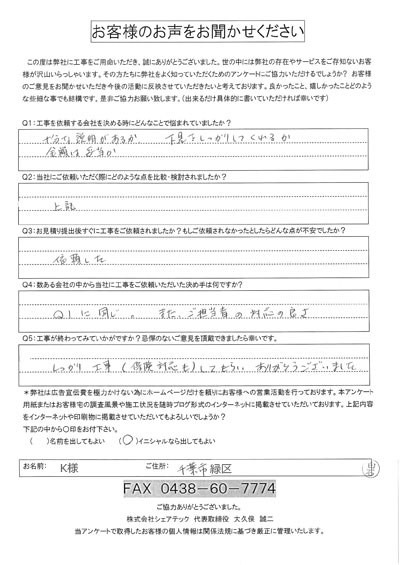 お客様のお声をお聞かせください
この度は弊社に工事をご用命いただき、誠にありがとうございました。世の中には弊社の存在やサービスをご存知ないお客
様が沢山いらっしゃいます。その方たちに弊社をよく知っていただくためのアンケートにご協力いただけるでしょうか？ お客様
のご意見をお聞かせいただき今後の活動に反映させていただきたいと考えております。良かったこと、嬉しかったことどのよう
な些細な事でも結構です、是非ご協力お願い致します。(出来るだけ具体的に書いていただければ幸いです)
Q1：工事を依頼する会社を決める時にどんなことで悩まれていましたか？
十分な説明があるか 下見をしっかりしてくれるか
金額は妥当か
Q2：当社にご依頼いただく際にどのような点を比較・検討されましたか？
上記
Q3：お見積り提出後すぐに工事をご依頼されましたか？もしご依頼されなかったとしたらどんな点が不安でしたか？
依頼した
Q4：数ある会社の中から当社に工事をご依頼いただいた決め手は何ですか？
Q1に同じ。 また、ご担当者の対応の良さ
Q5：工事が終わってみていかがですか？忌憚のないご意見を頂戴できましたら幸いです。
しっかり工事(保険対応も)してもらい、ありがとうございました
＊弊社は広告宣伝費を極力かけない為にホームページだけを頼りにお客様への営業活動を行っております。本アンケート
用紙またはお客様宅の調査風景や施工状況を随時ブログ形式のインターネットに掲載させていただいております。上記内容
をインターネットや印刷物に掲載させていただいてもよろしいでしょうか？
下記の中から〇印をお付下さい。
( )名前を出してもよい (〇)イニシャルなら出してもよい
お名前： K様 ご住所： 千葉市緑区
FAX 0438-60-7774
ご協力ありがとうございました。
株式会社シェアテック 代表取締役 大久保 誠二
当アンケートで取得したお客様の個人情報は関係法規に基づき厳正に管理いたします。